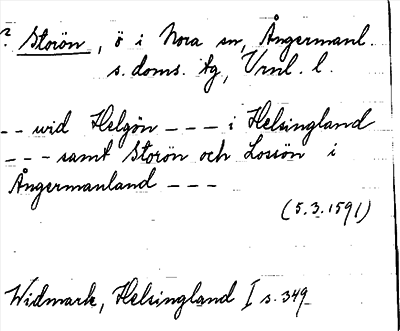 ? Storön, ö i Nora sn, Ångermanl.
s. doms. tg, Vrnl. l.
-- wid Helgön --- i Helsingland
--- samt Storön och Lossön i
Ångermanland ---
(5.3.1591)
Widmark, Helsingland I s. 349